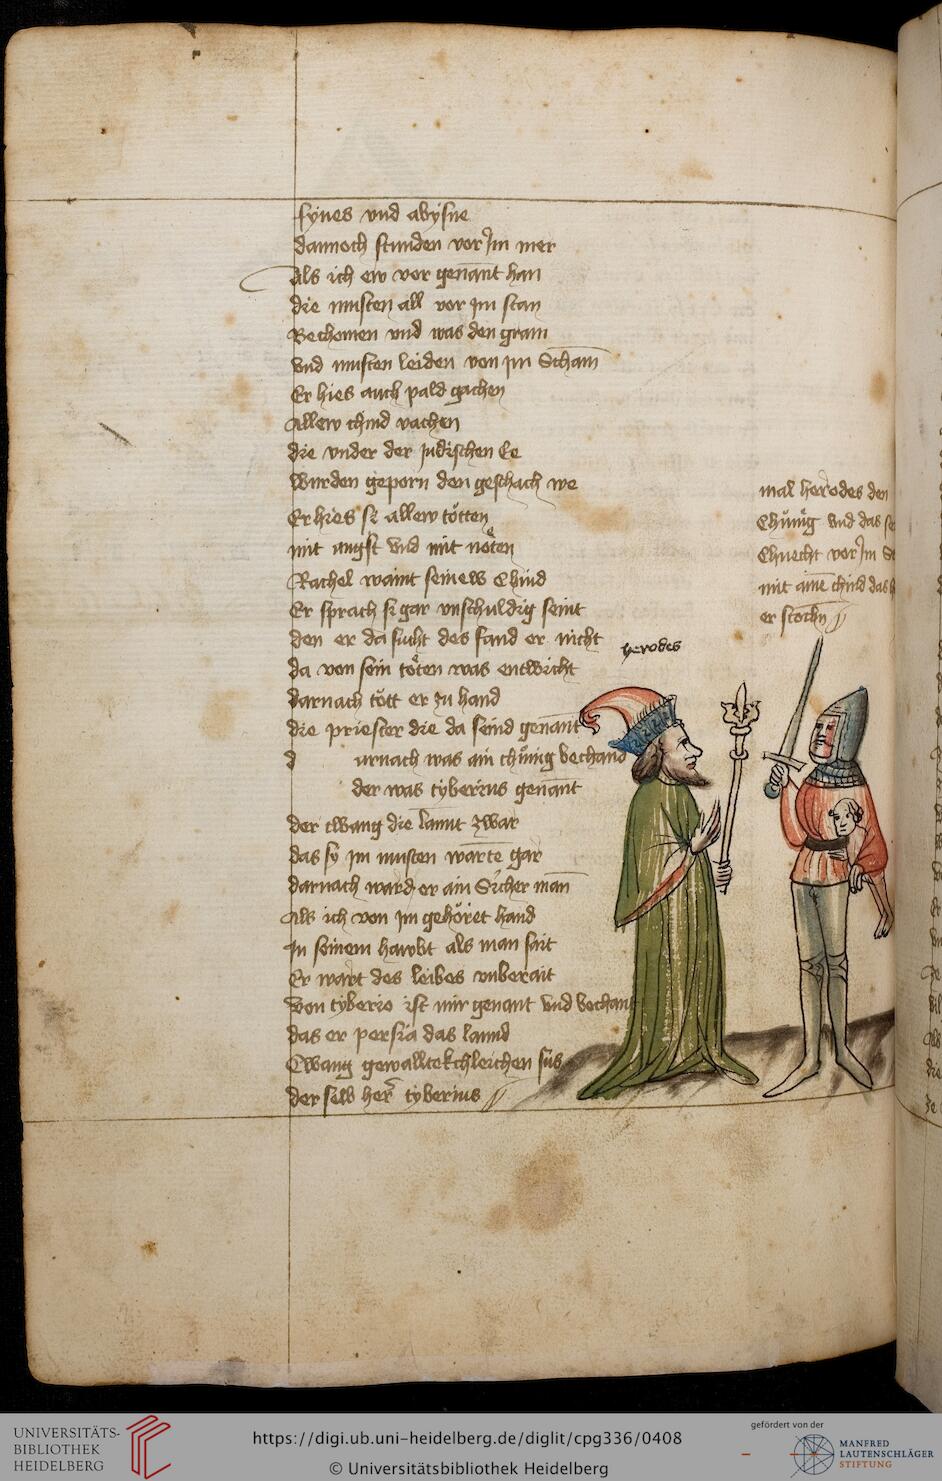 synes vnd abysne
dannoch stunden vor Im mer
Als ich ew vor genant han
die musten all vor im stan
Bechomen vnd was den gram
vnd musten leiden von im Scham
Er hies auch pald gachen
Allew chind vachen
die vnder der judischen Ee
wurden geporn den geschach we
Er hies si allew tötten
mit angst vnd mit nöten
Rachel waint seinew Chind
Er sprach si gar vnschuldig seint
den er da sucht des fand er nicht
da von sein töten was entwicht
darnach tött er zu hand
die priester die da seind genant
d urnach was ain chünig bechand
der was tyberius genant
der twang die lannt zwar
das sy im musten warte gar
darnach ward er ain Sicher man
Als ich von im gehöret hand
In seinem hawbt als man sait
Er wart des leibes vnberait
von tyberio ist mir genant vnd bechant
das er persia das lannd
Twang gewalltekchleichen sus
der selb her tyberius
mal herodes den
Chünig vnd das
Chnecht vor Im
mit aine chind das
er stochn
herodes
UNIVERSITÄTS-
BIBLIOTHEK
HEIDELBERG
https://digi.ub.uni-heidelberg.de/diglit/cpg336/0408
© Universitätsbibliothek Heidelberg
gefördert von der
MANFRED
LAUTENSCHLÄGER
STIFTUNG